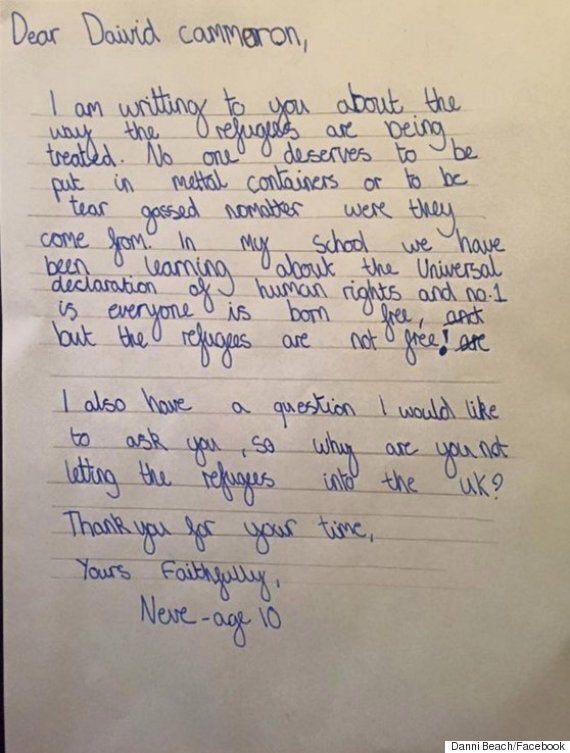 Dear Daivid cammeron,
I am writting to you about the
way the refugees are being
treated. No one deserves to be
put in mettal containers or to be
tear gassed nomatter were they
come from. In my school we have
been learning about the Universal
declaration of human rights and no.1
is everyone is born free, and
but the refugees are not free! are
I also have a question I would like
to ask you, so why are you not
letting the refugees into the UK?
Thank you for your time,
Yours Faithfully,
Neve - age 10
Danni Beach/Facebook